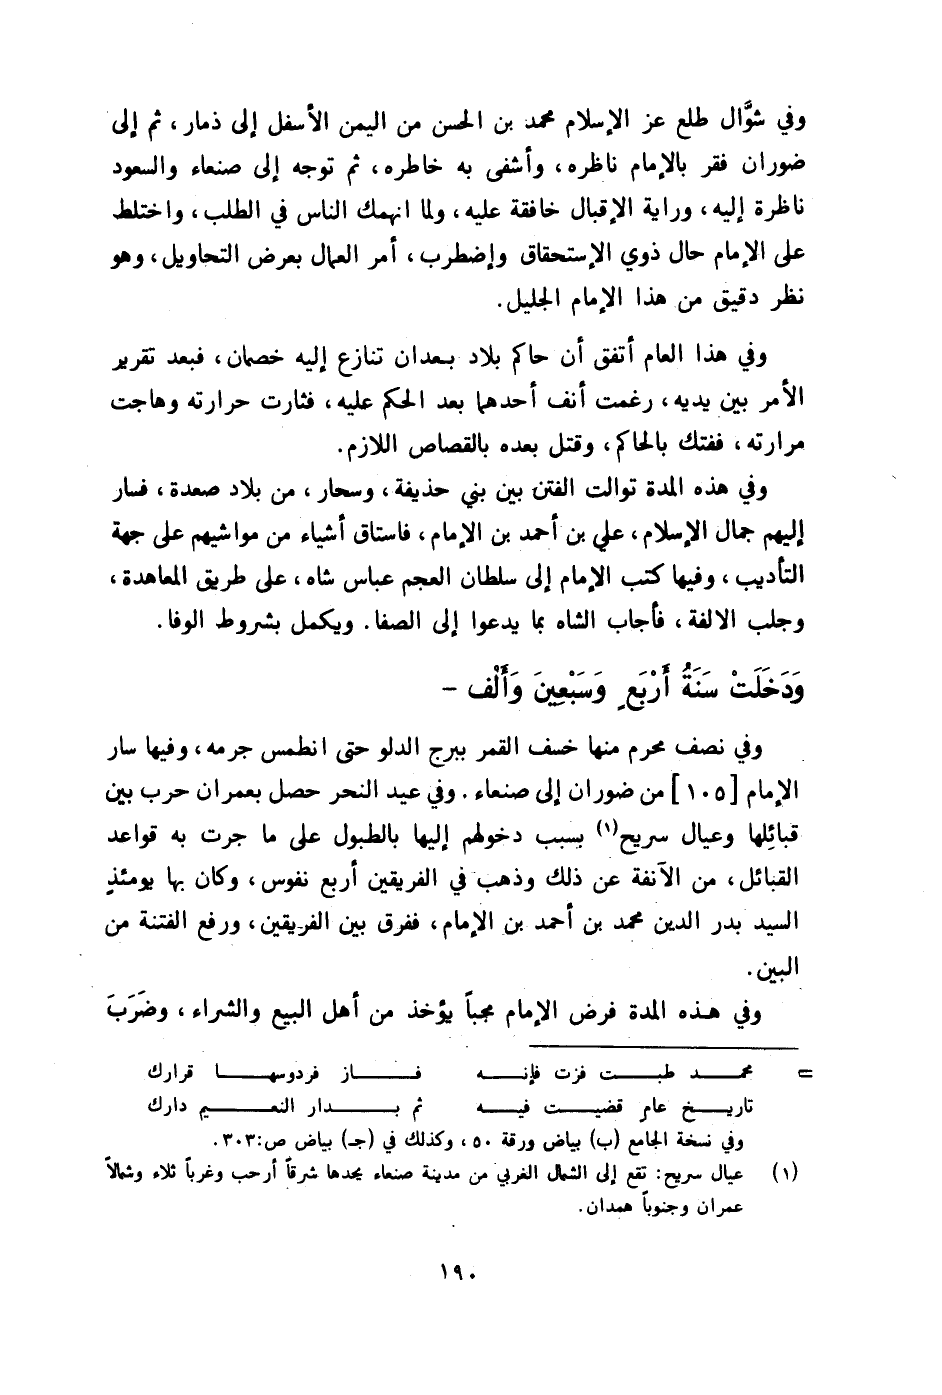 وفي شوَّال طلع عز الإسلام محمد بن الحسن من اليمن الأسفل إلى ذمار، ثم إلى
ضوران فقر بالإمام ناظره، وأشفى به خاطره، ثم توجه إلى صنعاء والسعود
ناظرة إليه، وراية الإقبال خافقة عليه، ولما انهمك الناس في الطلب، واختلط
على الإمام حال ذوي الإستحقاق وإضطرب، أمر العمال بعرض التحاويل، وهو
نظر دقيق من هذا الإمام الجليل.
وفي هذا العام أتفق أن حاكم بلاد بعدان تنازع إليه خصمان، فبعد تقرير
الأمر بين يديه، رغمت أنف أحدهما بعد الحكم عليه، فثارت حرارته وهاجت
مرارته، ففتك بالحاكم، وقتل بعده بالقصاص اللازم.
وفي هذه المدة توالت الفتن بين بني حذيفة، وسحار، من بلاد صعدة، فسار
إليهم جمال الإسلام، علي بن أحمد بن الإمام، فاستاق أشياء من مواشيهم على جهة
التأديب، وفيها كتب الإمام إلى سلطان العجم عباس شاه، على طريق المعاهدة،
وجلب الالفة، فأجاب الشاه بما يدعوا إلى الصفا. ويكمل بشروط الوفا.
وَدَخَلَتْ سَنَةُ أَرْبَعٍ وَسَبْعِينَ وَأَلْف –
وفي نصف محرم منها خسف القمر ببرج الدلو حتى انطمس جرمه، وفيها سار
الإمام [١٠٥] من ضوران إلى صنعاء. وفي عيد النحر حصل بعمران حرب بين
قبائلها وعيال سريح(١) بسبب دخولهم إليها بالطبول على ما جرت به قواعد
القبائل، من الآنفة عن ذلك وذهب في الفريقين أربع نفوس، وكان بها يومئذٍ
السيد بدر الدين محمد بن أحمد بن الإمام، ففرق بين الفريقين، ورفع الفتنة من
البين.
وفي هذه المدة فرض الإمام مجباً يؤخذ من أهل البيع والشراء، وضَرَبَ
= محمد طبت فزت فإنه فاز فردوسها قرارك
تاريخ عام قضيت فيه ثم بدار النعيم دارك
وفي نسخة الجامع (ب) بياض ورقة ٥٠، وكذلك في (جـ) بياض ص:٣٠٣.
(١) عيال سريح: تقع إلى الشمال الغربي من مدينة صنعاء يحدها شرقاً أرحب وغرباً ثلاء وشمالاً
عمران وجنوباً همدان.
١٩٠